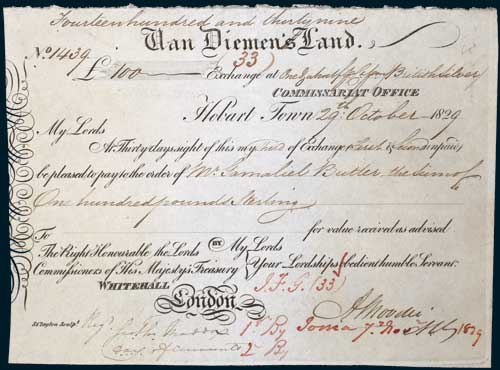 Fourteen hundred and thirty nine
Van Diemen's Land.
No. 1439
33)
£ 100 Exchange at One & a half p Ct for British Silver
COMMISSARIAT OFFICE
Hobart Town 29th October 1829
My Lords
At Thirty days sight of this my Third of Exchange (First & Second unpaid)
be pleased to pay to the order of Mr. Gamaliel Butler, the Sum of
One hundred pounds Sterling
for value received as advised
To
The Right Honourable the Lords BY My Lords
Commissioners of His Majesty's Treasury Your Lordships obedient humble Servant.
WHITEHALL (33)
London A Moodie
1st By Ioma 7th No 1829
2 By